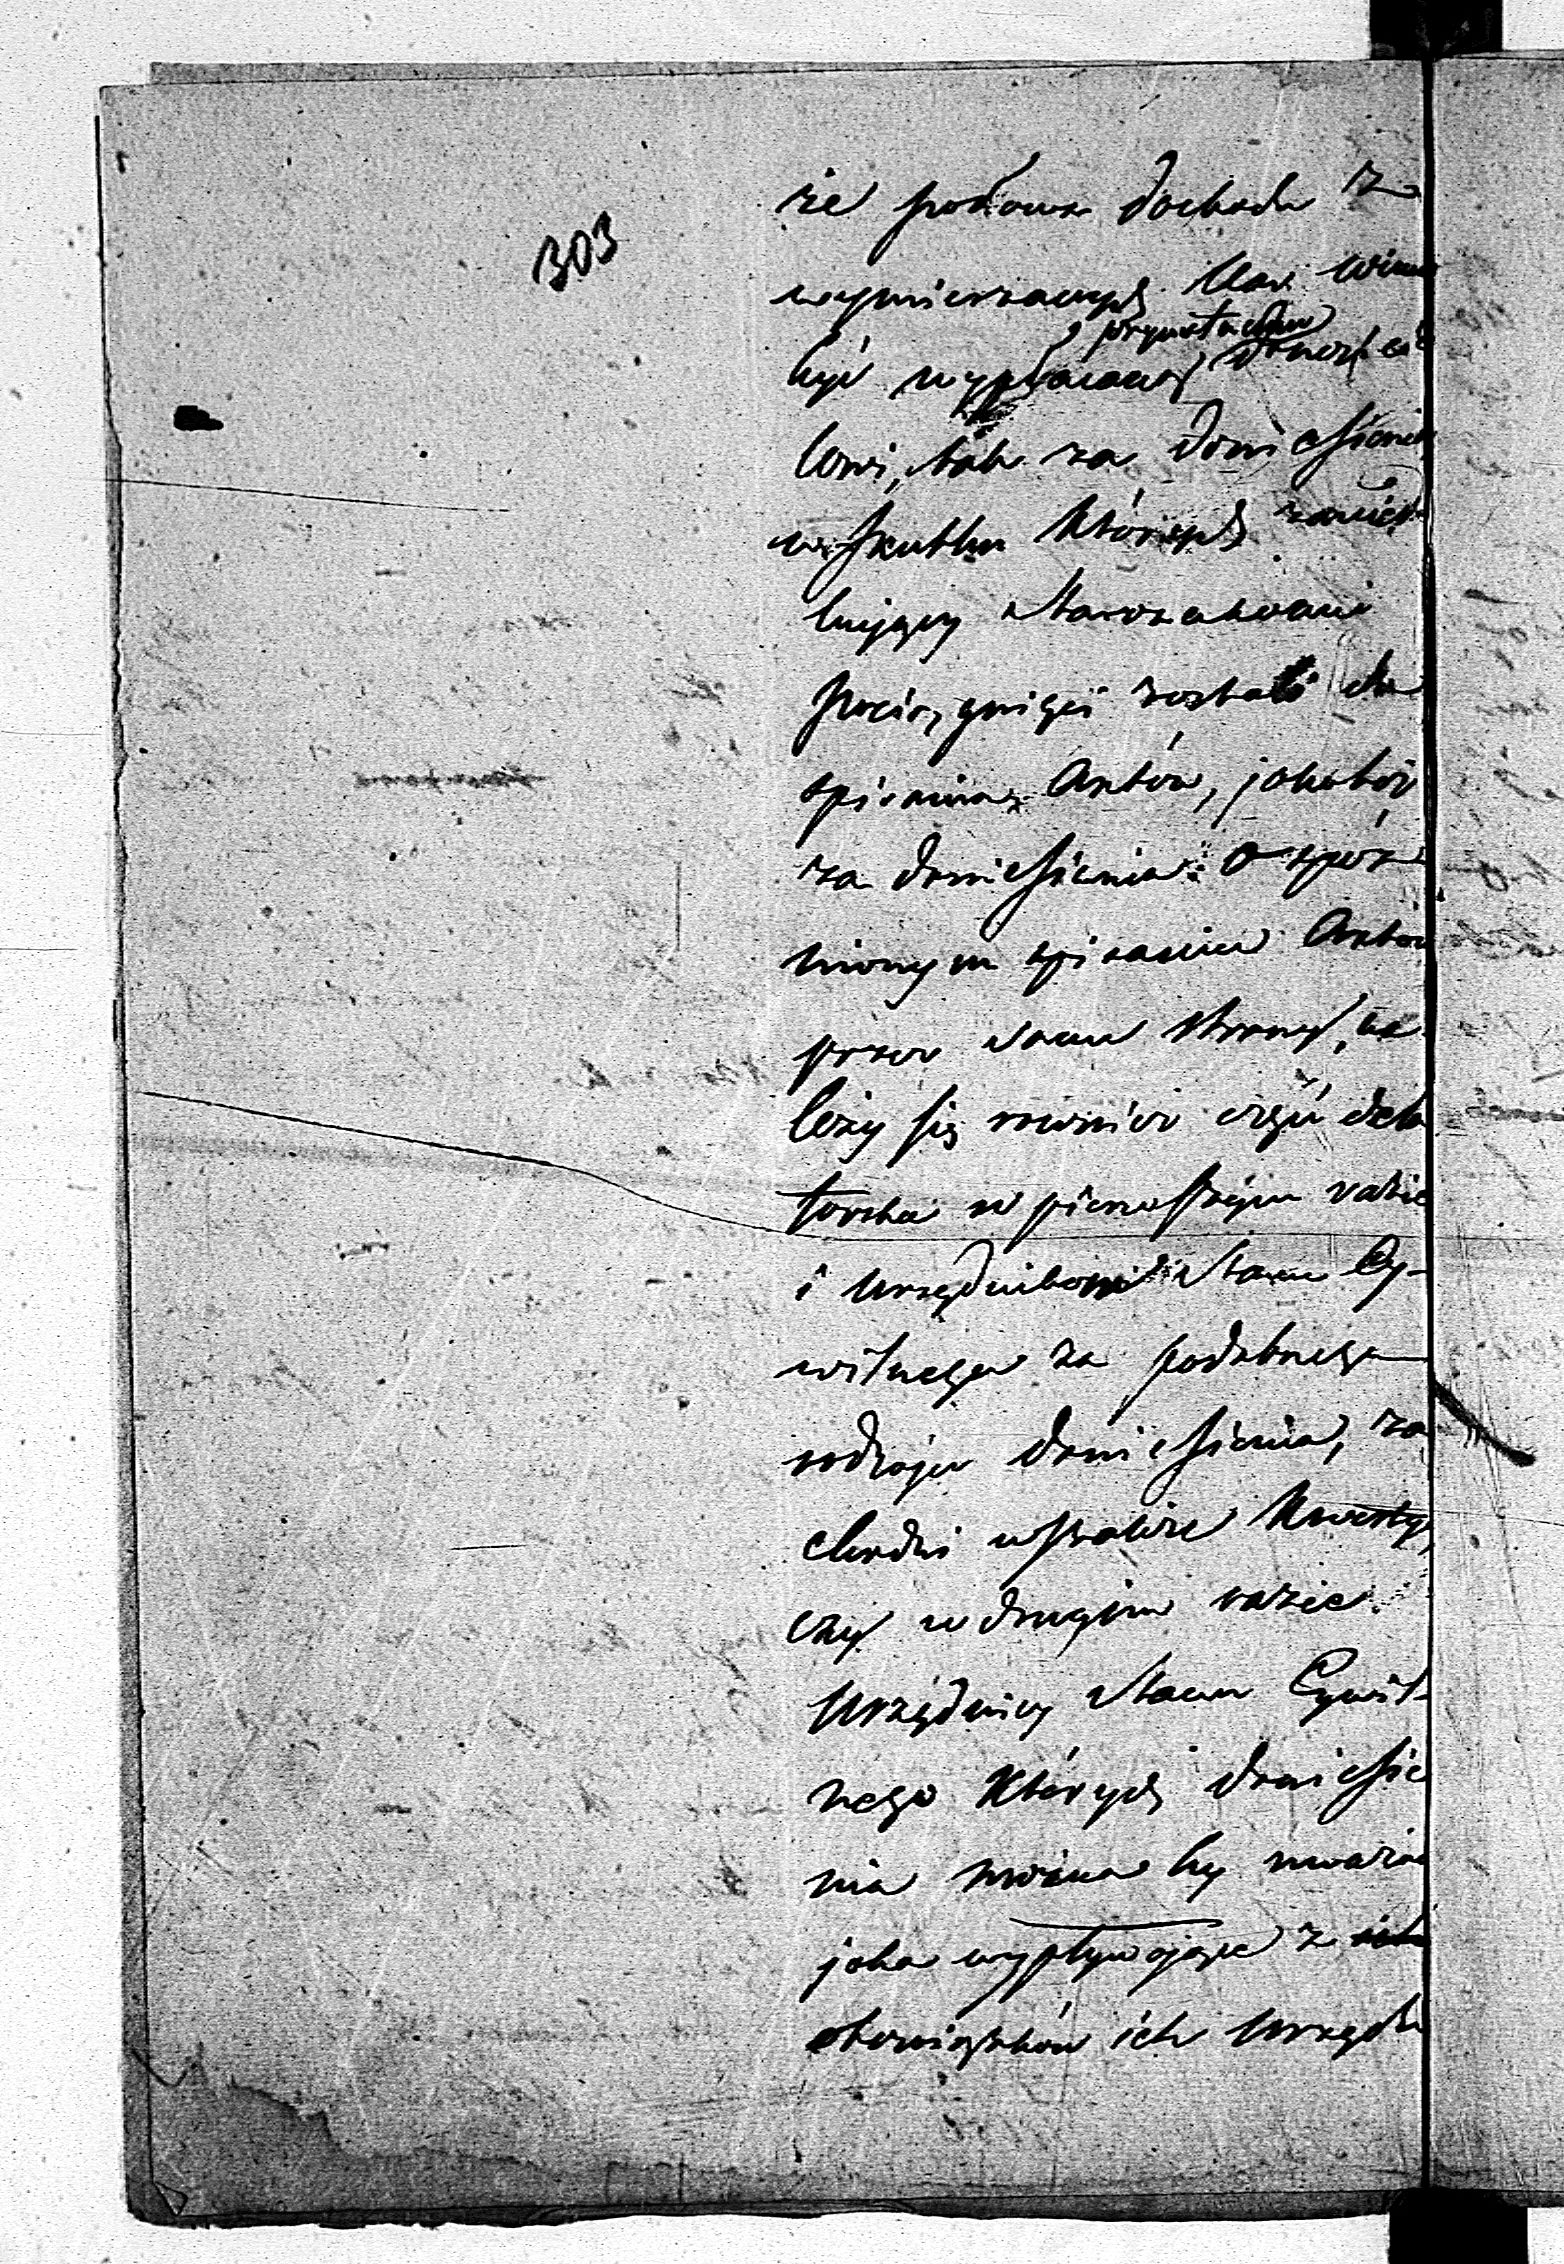 303
że połowa dochodu z
wymierzanych kar winna
prywatnemu
być wypłacaną donosicie
lowi, tak za doniesienia
w skutku których zanied
bujący starozakonni
pociągnięci zostali do
spisania Aktów, jako też
za doniesienia o spóź
nionym spisaniu Aktów
przez same strony, na
leży się również część dela
torska w pierwszym razie
i urzędnikom Stanu Cy-
wilnego za podobnego
rodzaju doniesienia, za
chodzi wszakże kwestya,
czy w drugim razie
Urzędnicy Stanu Cywil-
nego których doniesie
nia można by uważać
jako wypływające z
obowiązków ich urzędu